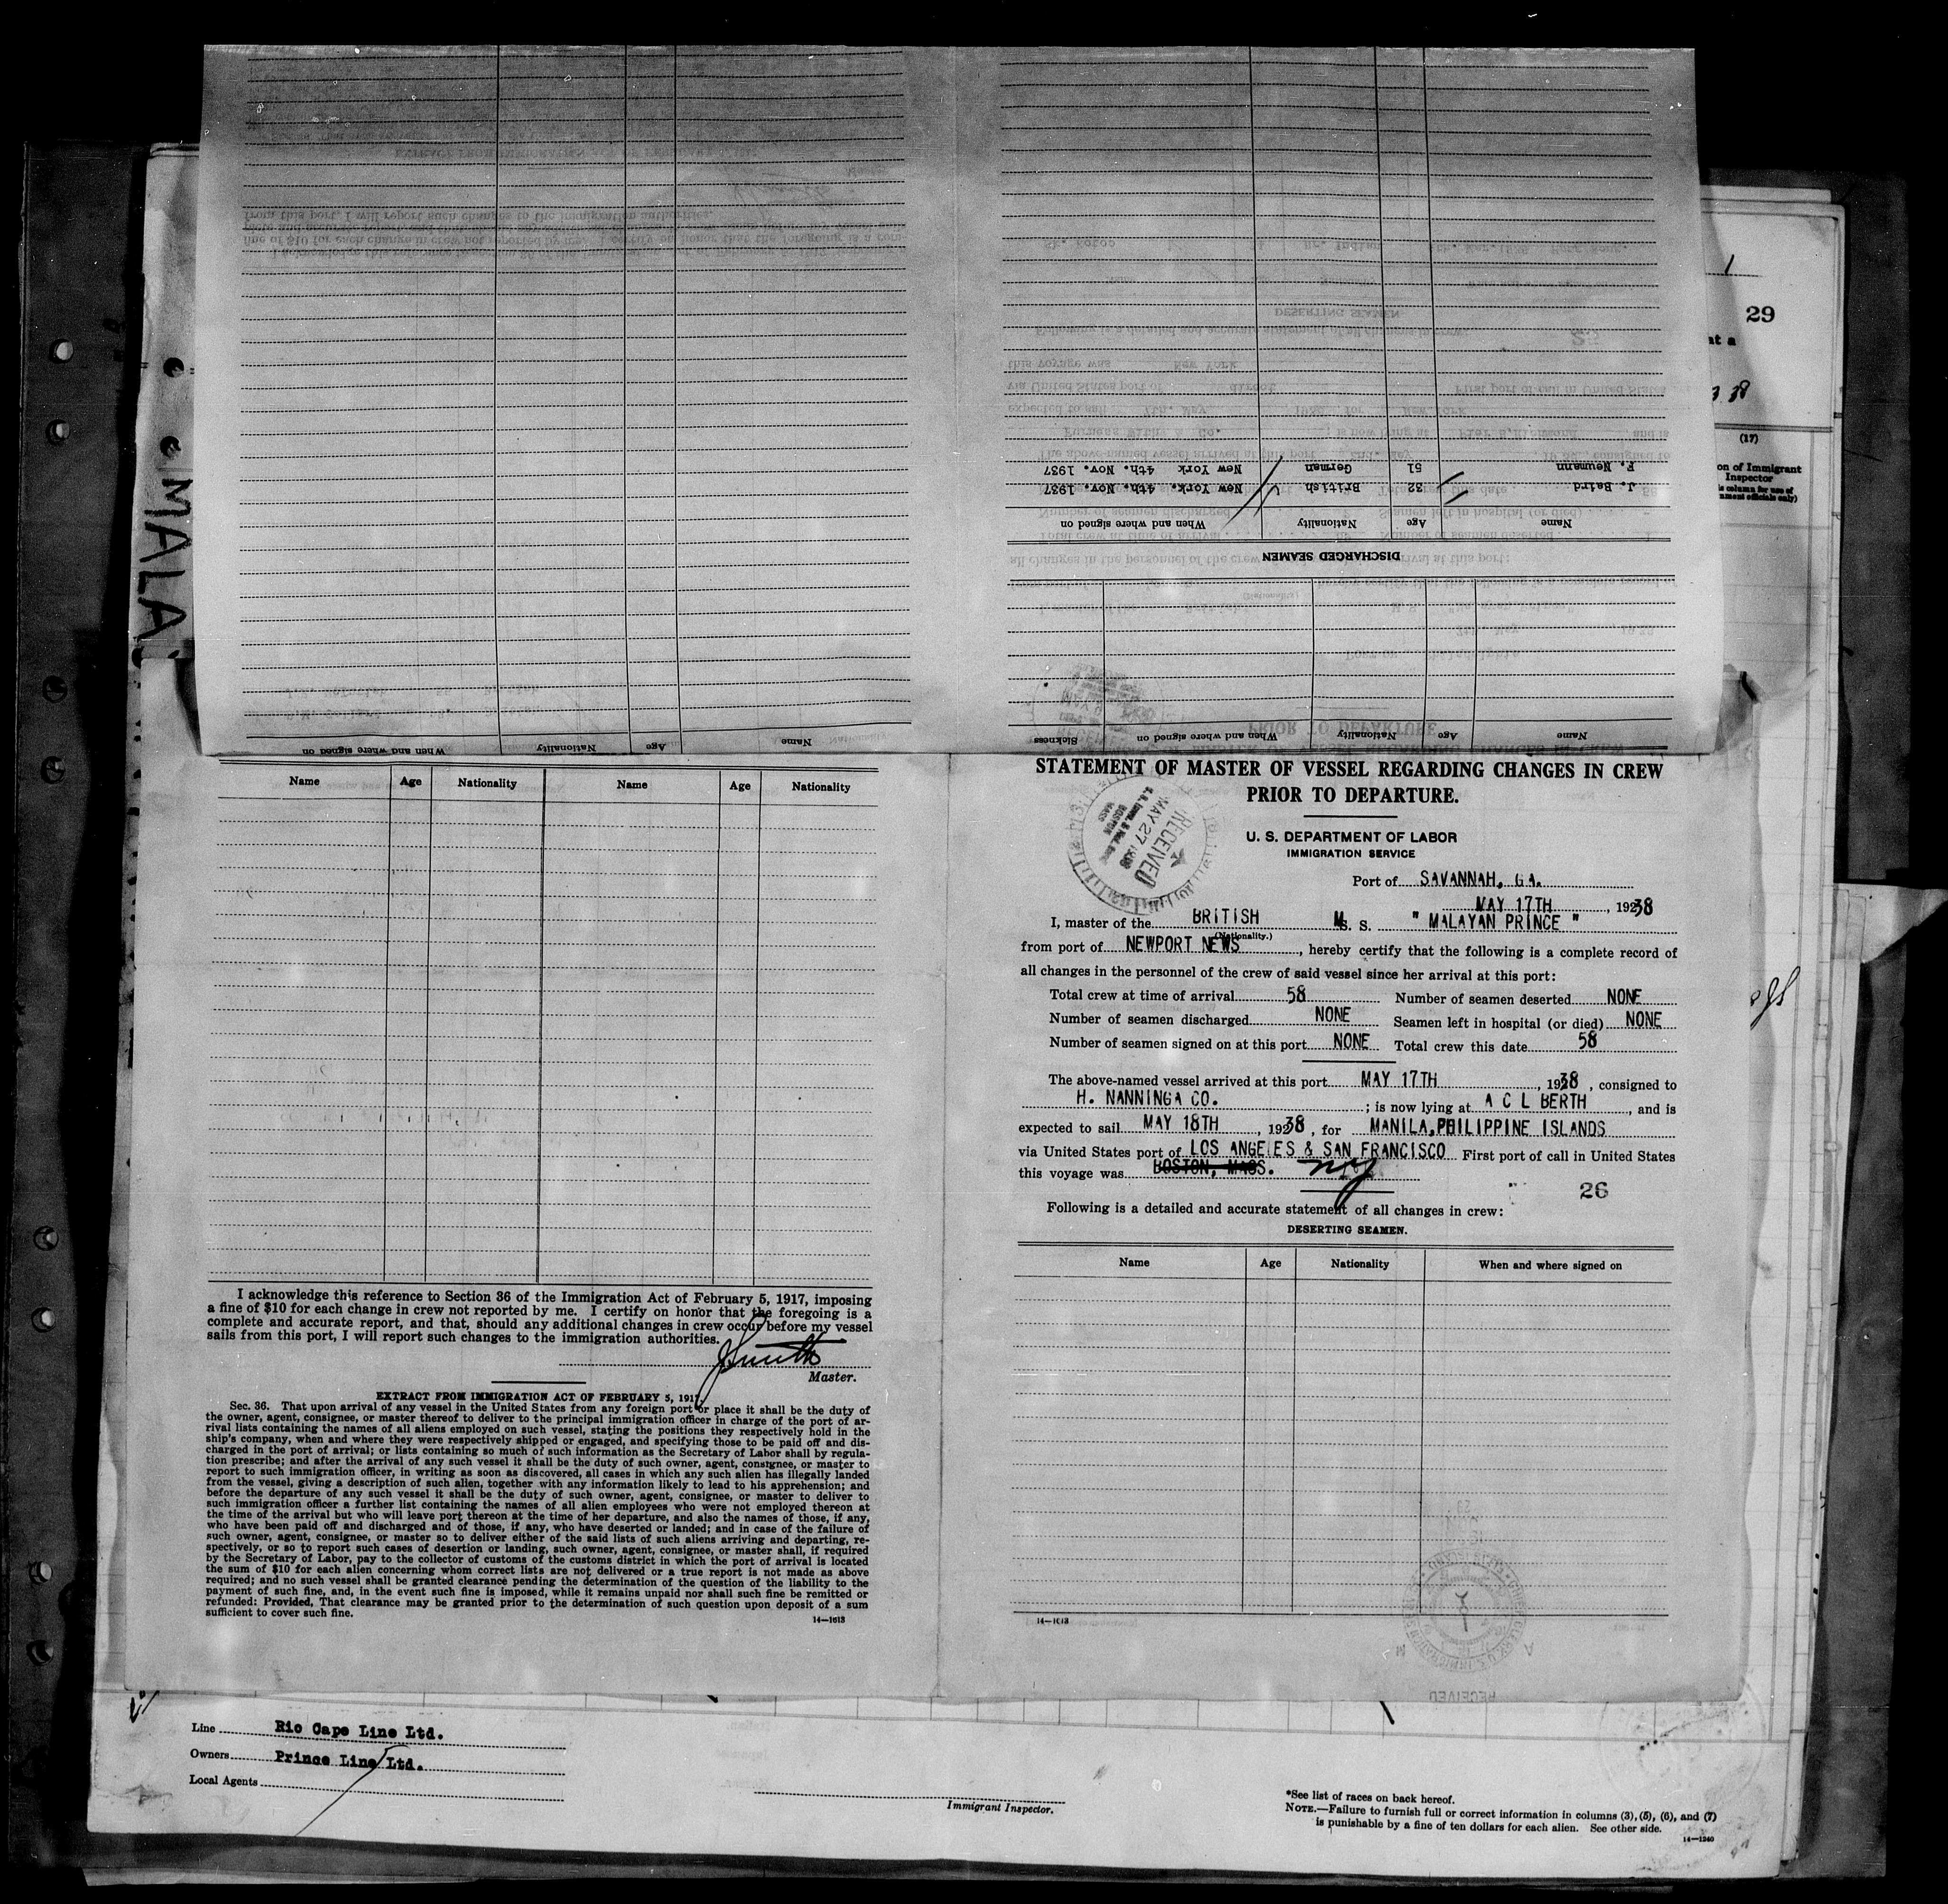 29
(17)
on of Immigrant
Inspector
MALA
J. Baird 32 British New York. 4th. Nov. 1937
F. Neumann 51 German New York 4th. Nov. 1937
Name Age Nationality When and where signed on
DISCHARGED SEAMEN
Name Age Nationality When and where signed on Sickness
Name Age Nationality When and where signed on
Name Age Nationality Name Age Nationality
I acknowledge this reference to Section 36 of the Immigration Act of February 5, 1917, imposing
a fine of $10 for each change in crew not reported by me. I certify on honor that the foregoing is a
complete and accurate report, and that, should any additional changes in crew occur before my vessel
sails from this port, I will report such changes to the immigration authorities.
JSmith
Master.
EXTRACT FROM IMMIGRATION ACT OF FEBRUARY 5, 1917
Sec. 36. That upon arrival of any vessel in the United States from any foreign port or place it shall be the duty of
the owner, agent, consignee, or master thereof to deliver to the principal immigration officer in charge of the port of ar-
rival lists containing the names of all aliens employed on such vessel, stating the positions they respectively hold in the
ship's company, when and where they were respectively shipped or engaged, and specifying those to be paid off and dis-
charged in the port of arrival; or lists containing so much of such information as the Secretary of Labor shall by regula-
tion prescribe; and after the arrival of any such vessel it shall be the duty of such owner, agent, consignee, or master to
report to such immigration officer, in writing as soon as discovered, all cases in which any such alien has illegally landed
from the vessel, giving a description of such alien, together with any information likely to lead to his apprehension; and
before the departure of any such vessel it shall be the duty of such owner, agent, consignee, or master to deliver to
such immigration officer a further list containing the names of all alien employees who were not employed thereon at
the time of the arrival but who will leave port thereon at the time of her departure, and also the names of those, if any,
who have been paid off and discharged and of those, if any, who have deserted or landed; and in case of the failure of
such owner, agent, consignee, or master so to deliver either of the said lists of such aliens arriving and departing, re-
spectively, or so to report such cases of desertion or landing, such owner, agent, consignee, or master shall, if required
by the Secretary of Labor, pay to the collector of customs of the customs district in which the port of arrival is located
the sum of $10 for each alien concerning whom correct lists are not delivered or a true report is not made as above
required; and no such vessel shall be granted clearance pending the determination of the question of the liability to the
payment of such fine, and, in the event such fine is imposed, while it remains unpaid nor shall such fine be remitted or
refunded: Provided, That clearance may be granted prior to the determination of such question upon deposit of a sum
sufficient to cover such fine.
14—1613
STATEMENT OF MASTER OF VESSEL REGARDING CHANGES IN CREW
PRIOR TO DEPARTURE.
RECEIVED
MAY 27 1938
BOSTON
MASS
U. S. DEPARTMENT OF LABOR
IMMIGRATION SERVICE
Port of SAVANNAH, GA.
MAY 17TH, 1938
I, master of the BRITISH M. S. " MALAYAN PRINCE "
(Nationality.)
from port of NEWPORT NEWS, hereby certify that the following is a complete record of
all changes in the personnel of the crew of said vessel since her arrival at this port:
Total crew at time of arrival 58 Number of seamen deserted NONE
Number of seamen discharged NONE Seamen left in hospital (or died) NONE
Number of seamen signed on at this port NONE Total crew this date 58
The above-named vessel arrived at this port MAY 17TH, 1938, consigned to
H. NANNINGA CO.; is now lying at A C L BERTH, and is
expected to sail MAY 18TH, 1938, for MANILA,PHILIPPINE ISLANDS
via United States port of LOS ANGELES & SAN FRANCISCO First port of call in United States
this voyage was BOSTON, MASS. ny
26
Following is a detailed and accurate statement of all changes in crew:
DESERTING SEAMEN.
Name Age Nationality When and where signed on
14—1613
RECEIVED
Line Rio Cape Line Ltd.
Owners Prince Line Ltd.
Local Agents
Immigrant Inspector.
*See list of races on back hereof.
NOTE.—Failure to furnish full or correct information in columns (3), (5), (6), and (7)
is punishable by a fine of ten dollars for each alien. See other side.
14—1240